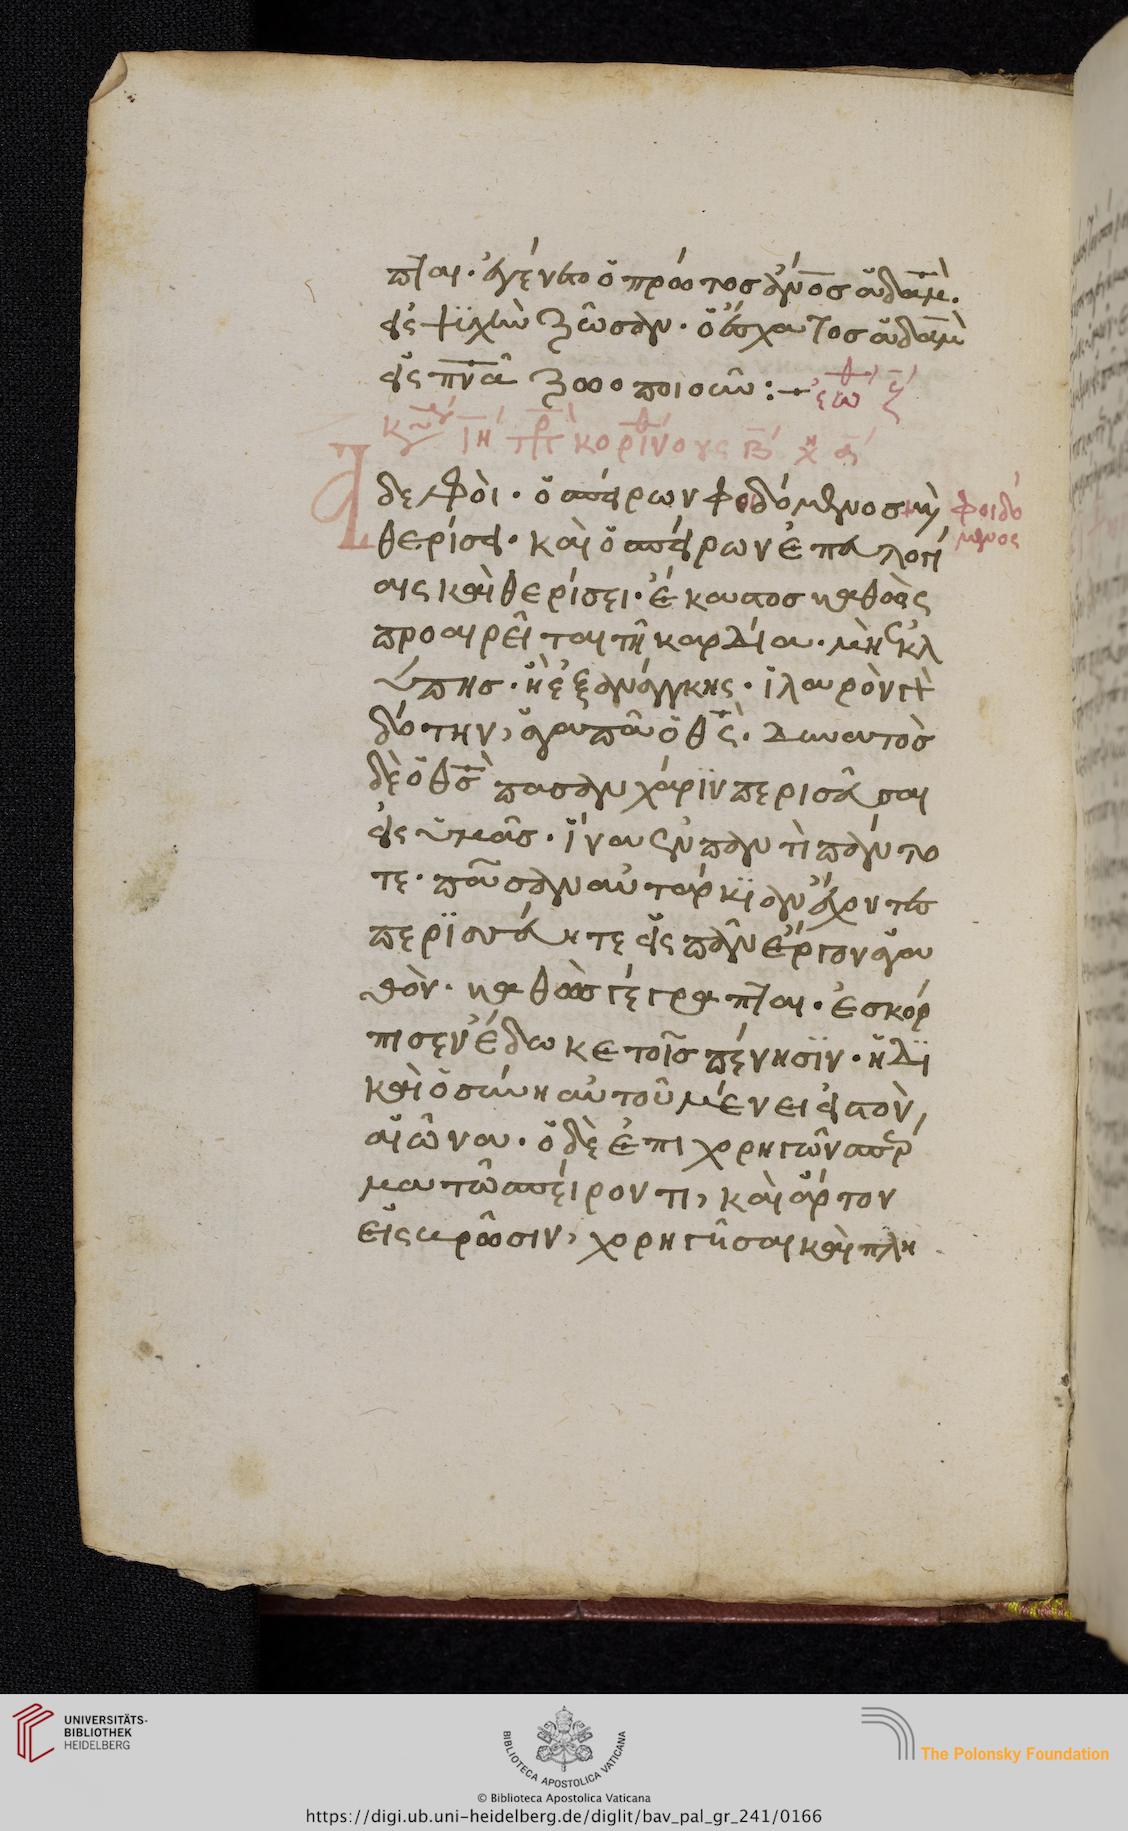 πται· ἐγένετο ὁ πρῶτος ἄνος ἀδὰμ·
εἰς ψϊχὴν ζῶσαν· ὁ ἔσχατος ἀδὰμ
εἰς πνᾶ ζωοποιοῦν :—
κορινθ β
Ἀδελφοὶ· ὁ σπείρων φειδόμενος
φειδό
μενος
θερίσει· καὶ ὁ σπείρων ἐπ ευλογί
αις καὶ θερίσει· ἕκαστος καθὼς
προαιρεῖται τῆ καρδία· μὴ ἐκ λ
ύπης· ἢ ἐξ ἀνάγκης· ἱλαρὸν γὰρ
δότην, ἀγαπᾶ ὁ θς· δυνατὸσ
δὲ ὁ θσ πασαν χάριν περισεῦσαι
εἰς ὑμᾶσ· ἵνα ἐν παντὶ πάντο
τε· πᾶσαν αὐταρκϊαν ἔχοντεσ
περϊσεύητε εἰς πᾶν ἔργον ἀγα
θὸν· καθὼσ γέγραπται· ἐσκόρ
πισεν ἔδωκε τοῖσ πένησϊν· ἡ δϊ
καὶοσύνη αὐτοῦ μένει εἰς τὸν,
αἰῶνα· ὁ δὲ ἐπιχορηγῶν σπέρ
μα τῶ σπείροντι, καὶ ἄρτον
εἰς βρῶσιν, χορηγῆσαι καὶ πλη
UNIVERSITÄTS-
BIBLIOTHEK
HEIDELBERG
BIBLIOTECA APOSTOLICA VATICANA
The Polonsky Foundation
© Biblioteca Apostolica Vaticana
https://digi.ub.uni-heidelberg.de/diglit/bav_pal_gr_241/0166